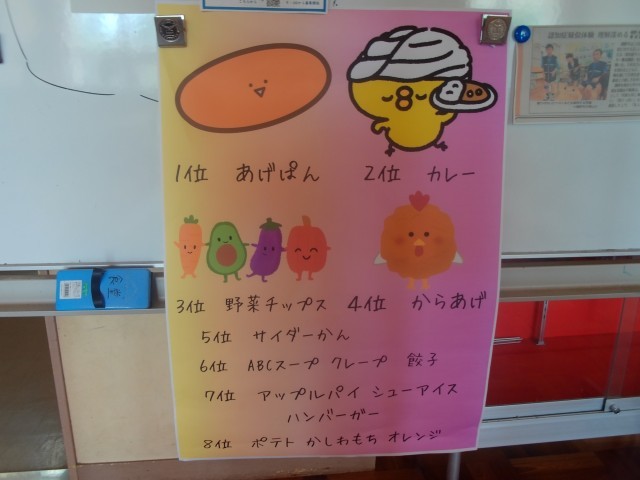 1位 あげぱん 2位 カレー
3位 野菜チップス 4位 からあげ
5位 サイダーかん
6位 ABCスープ クレープ 餃子
7位 アップルパイ シューアイス
ハンバーガー
8位 ポテト かしわもち オレンジ